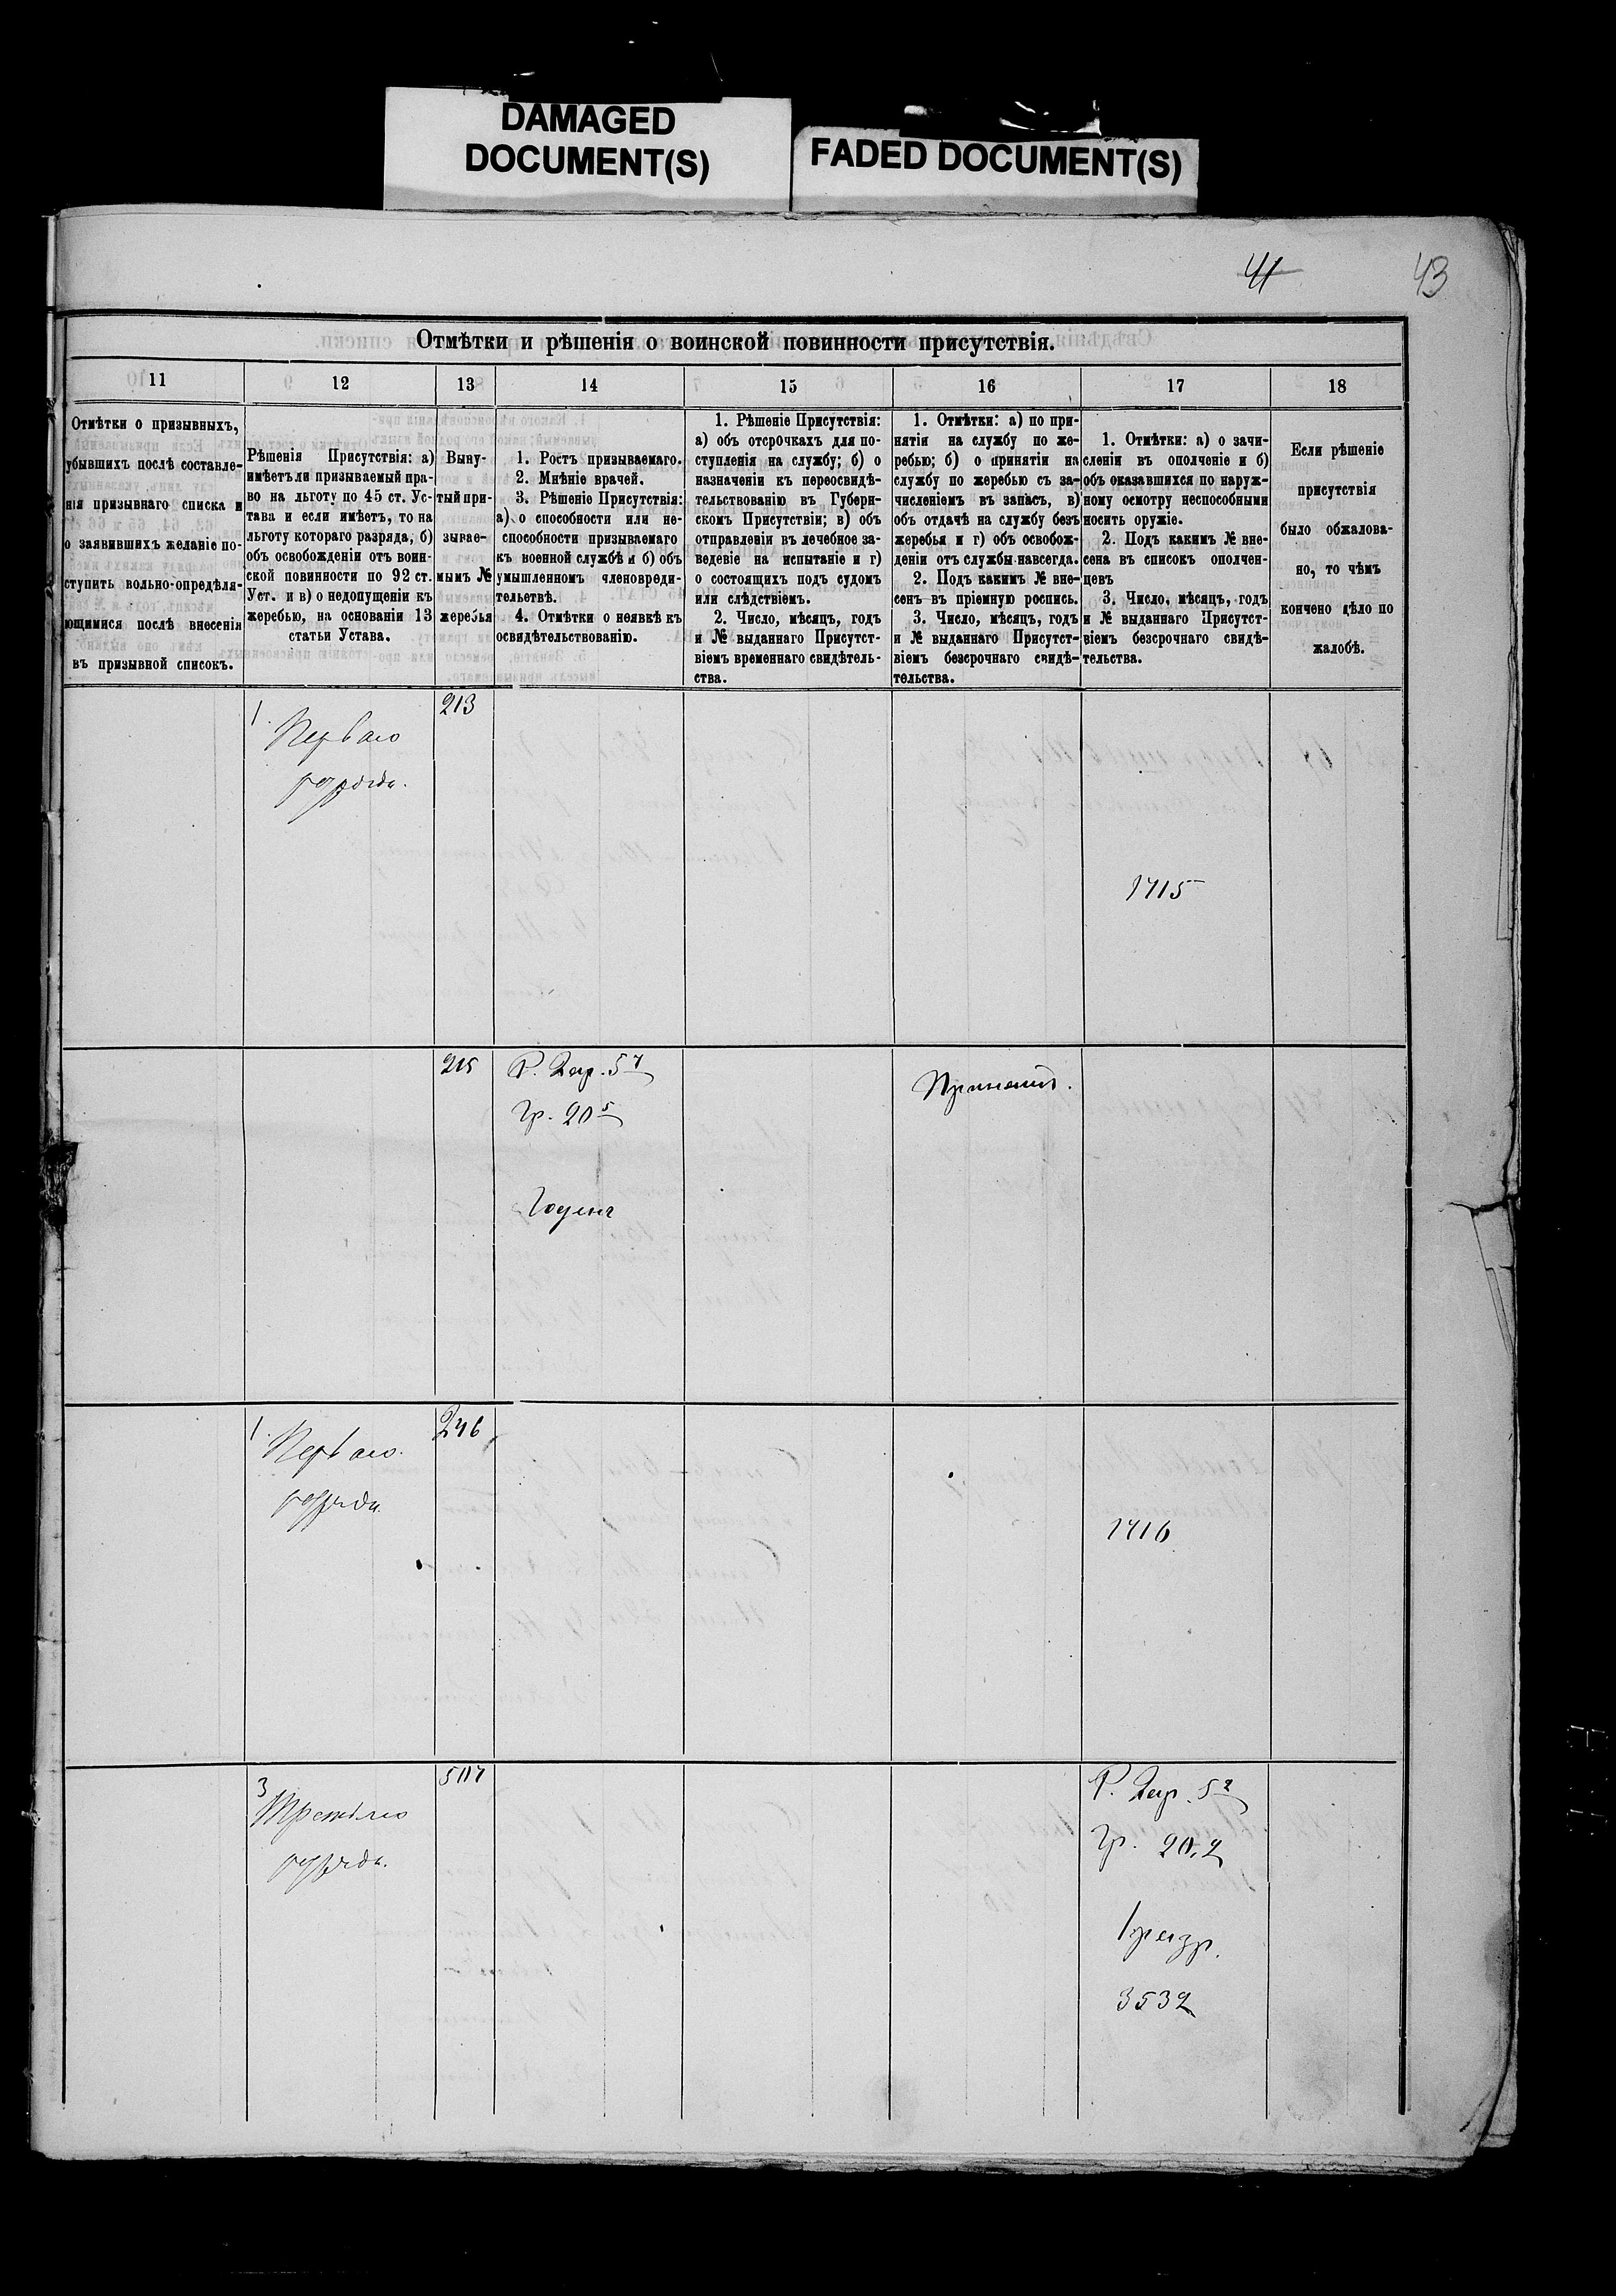 DAMAGED
DOCUMENT(S)
FADED DOCUMENT(S)
41
43
Отмѣтки и рѣшенія о воинской повинности присутствія.
11
12
13
14
15
16
17
18
Отмѣтки о призывныхъ,
убывшихъ послѣ составле-
нія призывнаго списка и
о заявившихъ желаніе по-
ступить вольно-опредѣля-
ющимися послѣ внесенія
въ призывной списокъ.
Рѣшенія Присутствія: а)
имѣетъ ли призываемый пра-
во на льготу по 45 ст. Ус-
тава и если имѣетъ, то на
льготу котораго разряда, б)
объ освобожденіи отъ воин-
ской повинности по 92 ст.
Уст. и в) о недопущеніи къ
жеребью, на основаніи 13
статьи Устава.
Выну-
тый при-
зывае-
мымъ №
жеребья
1. Ростъ призываемаго.
2. Мнѣніе врачей.
3. Рѣшеніе Присутствія:
а) о способности или не-
способности призываемаго
къ военной службѣ и б) объ
умышленномъ членовреди-
тельетвѣ.
4. Отмѣтки о неявкѣ къ
освидѣтельствованію.
1. Рѣшеніе Присутствія:
а) объ отсрочкахъ для по-
ступленія на службу; б) о
назначеніи къ переосвидѣ-
тельствованію въ Губерн-
скомъ Присутствіи; в) объ
отправленіи въ лечебное за-
веденіе на испытаніе и г)
о состоящихъ подъ судомъ
или слѣдствіемъ.
2. Число, мѣсяцъ, годъ
и № выданнаго Присутст-
віемъ временнаго свидѣтель-
ства.
1. Отмѣтки: а) по при-
нятіи на службу по же-
ребью; б) о принятіи на
службу по жеребью съ за-
численіемъ въ запасъ, в)
объ отдачѣ на службу безъ
жеребья и г) объ освобож-
деніи отъ службы навсегда.
2. Подъ какимъ № вне-
сенъ въ пріемную роспись.
3. Число, мѣсяцъ, годъ
и № выданнаго Присутст-
віемъ безсрочнаго свидѣ-
тельства.
1. Отмѣтки: а) о зачи-
сленіи въ ополченіе и б)
объ оказавшихся по наруж-
ному осмотру неспособными
носить оружіе.
2. Подъ какимъ № вне-
сена въ списокъ ополчен-
цевъ
3. Число, мѣсяцъ, годъ
и № выданнаго Присутст-
віемъ безсрочнаго свидѣ-
тельства.
Если рѣшеніе
присутствія
было обжалова-
но, то чѣмъ
кончено дѣло по
жалобѣ.
1.
Перваго
разряда.
213
1715
215
Р. 2 ар. 5 4
Гр. 20 5
Годенъ
Принятъ.
1.
Перваго.
разряда.
246
1716
3
Третьяго
разряда.
507
Р. 2 ар. 5 2
Гр. 20,2
1 разр.
3532